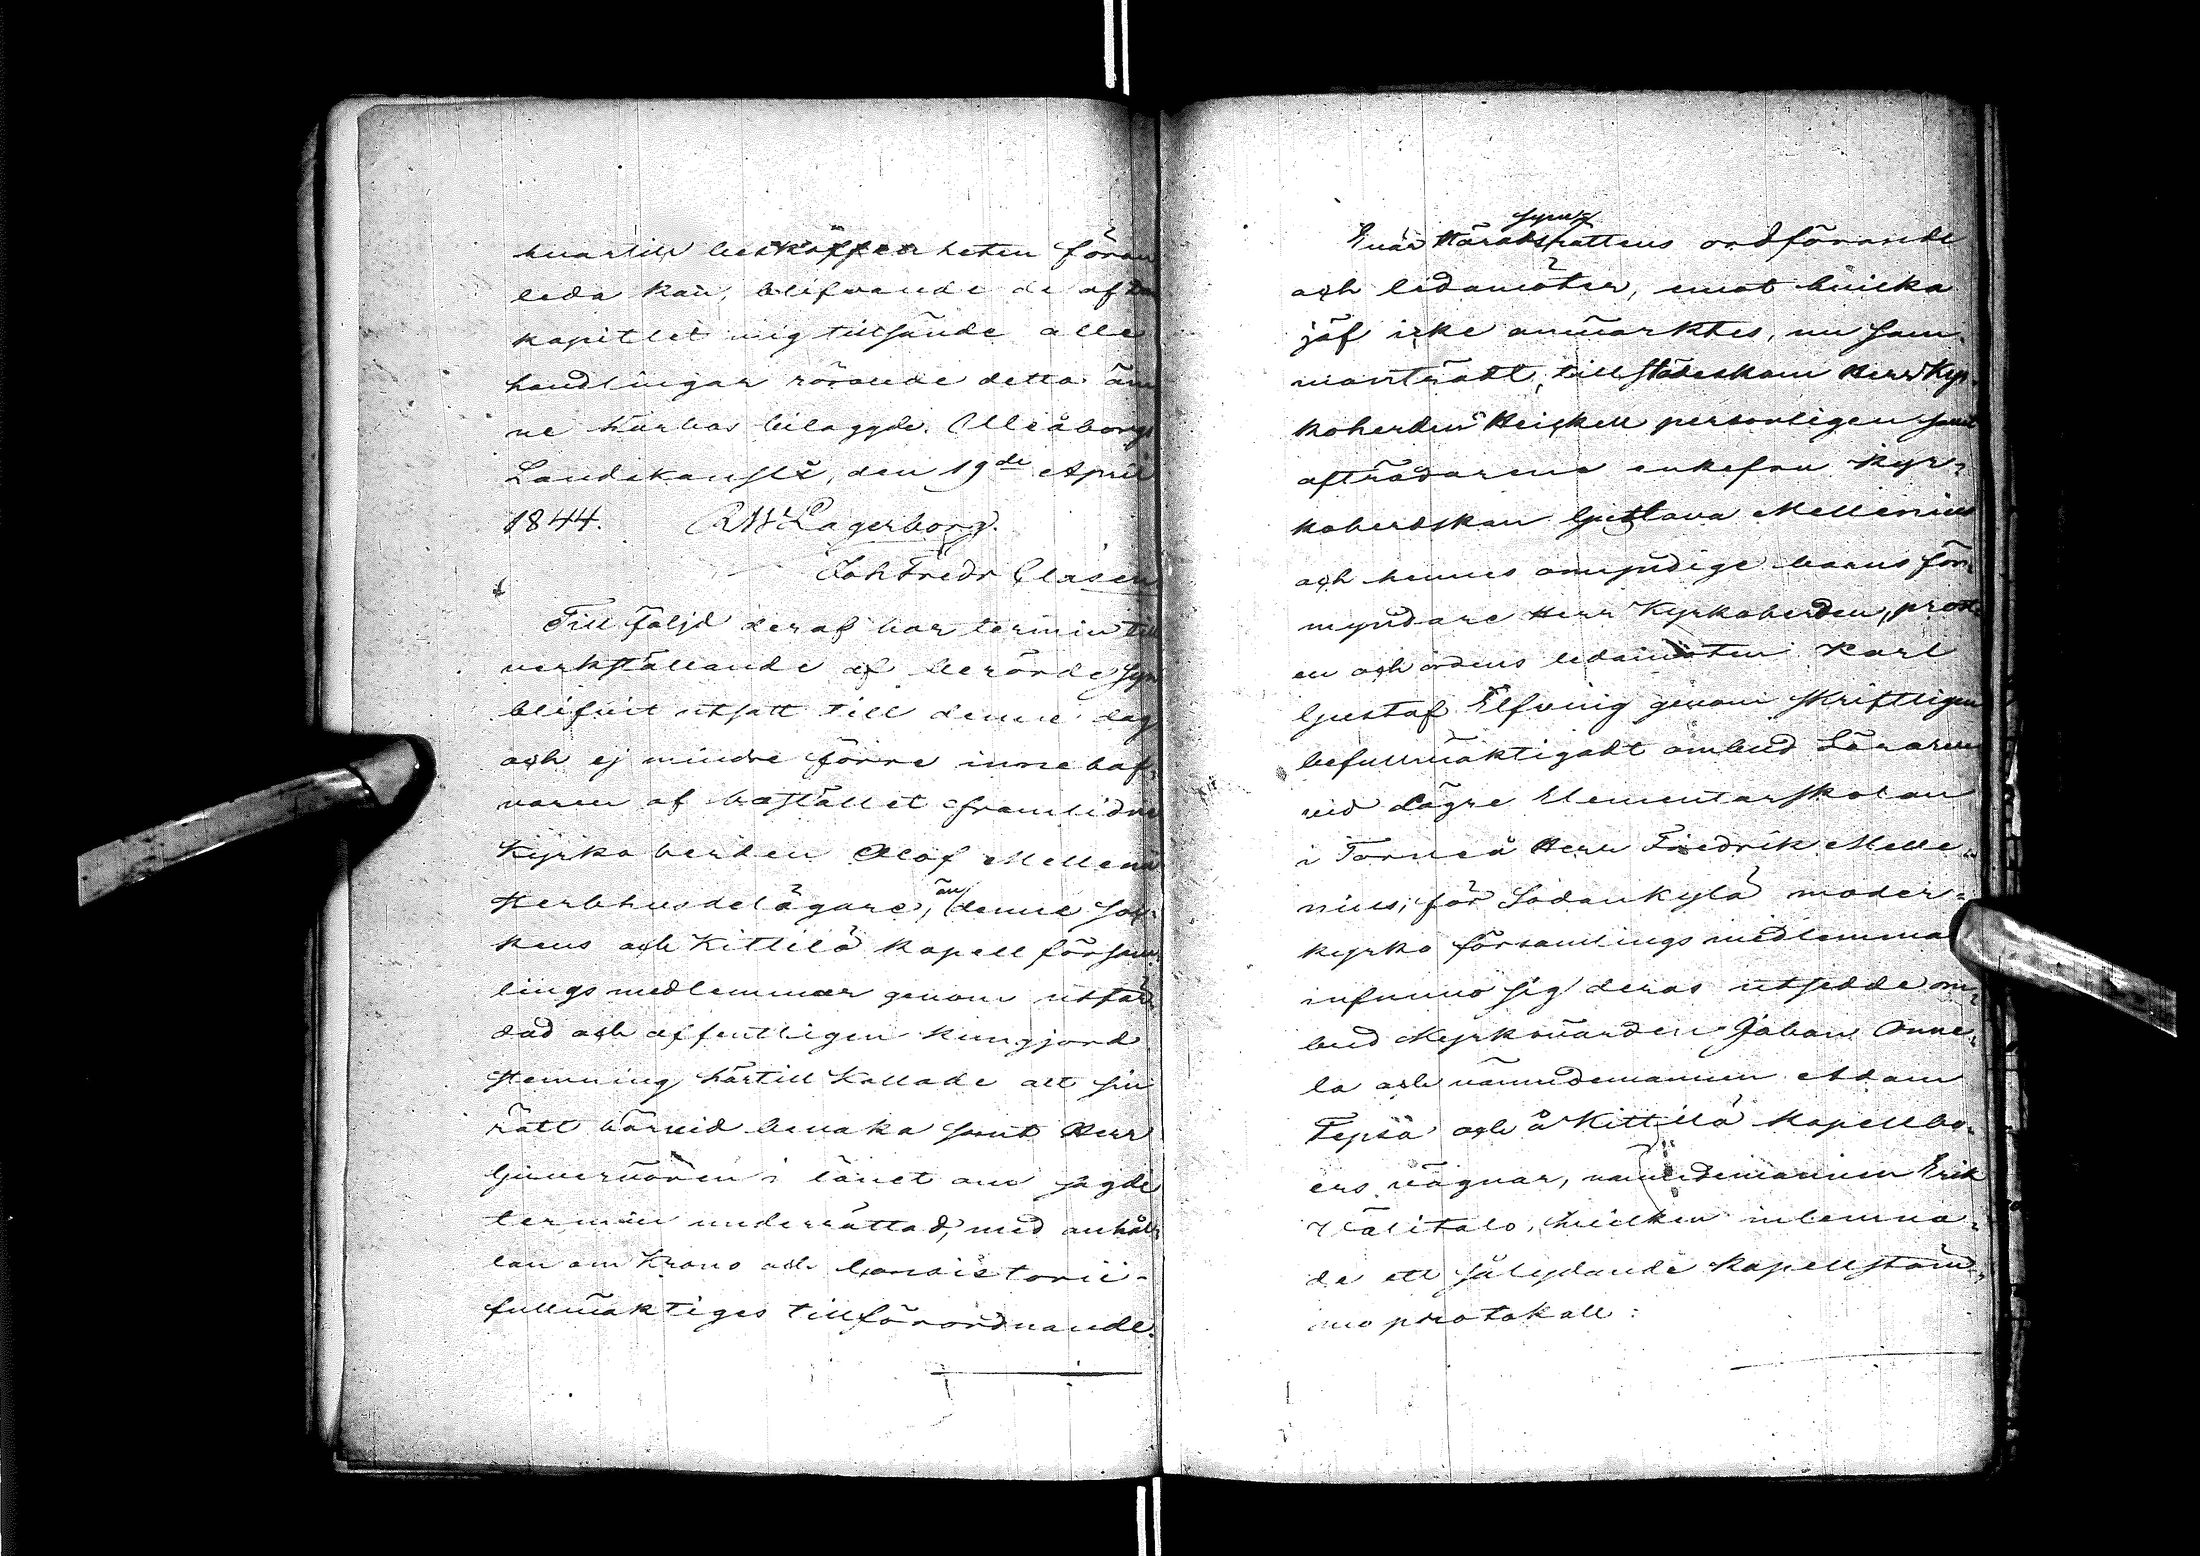 hvartill beskaffenheten föran
leda kan, blifvande de af Dom
kapitlet mig tillsände alla
handlingar rörande detta äm
ne härhos bilagde. Uleåborgs
Landskansli, den 19de April
1844. RWLagerborg.
Joh Fredr Clasen
Till följd deraf har termin till
verkställande af berörde syn
blifvit utsatt till denne dag
och ej mindre förre inne haf¬
varen af bostället framlidne
Kyrkoherden Olof Mellenii
Sterbhusdelägare, än denne Sok¬
kens och Kittilä kapell försam¬
lings medlemmar genom utfär
dad och offentligen kungjord
stemning härtill kallade att sin
rätt härvid bevaka samt Herr
Guvernören i länet om sagde
termin underrättad, med anhål¬
lan om Krono och Consistorii-
fullmäktiges tillförordnande.
Enär Häradssynerättens ordförande
och ledamöter, emot hvilka
jäf icke anmärktes, nu sam¬
manträdt, tillstädeskom Herr Kyr¬
koherden Heickell personligen samt
afträdarens enkefru Kyr¬
koherdskan Gustava Mellenius
och hennes omyndige barns för¬
myndare Herr Kyrkoherden, prost¬
en och ordens ledamoten Karl
Gustaf Elfving genom skriftligen
befullmäktigadt ombud Läraren
vid Lägre Elementarskolan
i Torneå Herr Fredrik Melle¬
nius; för Sodankylä moder¬
kyrko församlings medlemmar
infunno sig deras utsedde om¬
bud Kyrkovärden Johan Onne¬
la och nämndemannen Adam
Tepsä och å Kittilä kapellbo¬
ers vägnar, nämndemannen Erik
Välitalo, hvilken inlemna¬
de ett sålydande kapellstäm¬
mo protokoll: